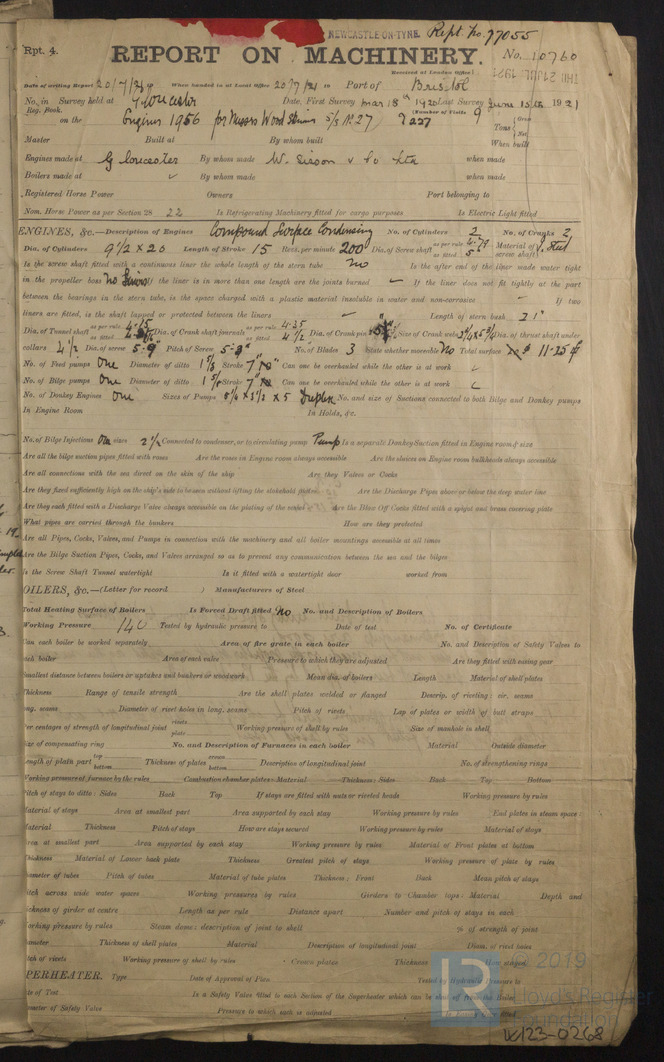 NEWCASTLE-ON-TYNE. Rept. no. 77055
Rpt. 4.
REPORT ON MACHINERY.
No. 10760
Received at London Office
THU 21 JUL 1921
Date of writing Report 20/7/21 When handed in at Local Office 20/7/21 Port of Bristol
No. in Survey held at Gloucester Date, First Survey Mar 18th 1920 Last Survey June 15th 1921
Reg. Book. (Number of Visits 9
on the Engines 1956 for Messrs Wood
Tons Gross Net
Master Built at By whom built When built
Engines made at Gloucester By whom made W. Sisson & Co Ltd when made
Boilers made at By whom made when made
Registered Horse Power Owners Port belonging to
Nom. Horse Power as per Section 28 22 Is Refrigerating Machinery fitted for cargo purposes Is Electric Light fitted
ENGINES, &c.—Description of Engines Compound Surface Condensing No. of Cylinders 2 No. of Cranks 2
Dia. of Cylinders 9 1/2 x 20 Length of Stroke 15 Revs. per minute 200 Dia. of Screw shaft as per rule 4.79 as fitted 5 Material of screw shaft Steel
Is the screw shaft fitted with a continuous liner the whole length of the stern tube No Is the after end of the liner made water tight
in the propeller boss If the liner is in more than one length are the joints burned If the liner does not fit tightly at the part
between the bearings in the stern tube, is the space charged with a plastic material insoluble in water and non-corrosive If two
liners are fitted, is the shaft lapped or protected between the liners Length of stern bush 21"
Dia. of Tunnel shaft as per rule 4.15 as fitted Dia. of Crank shaft journals as per rule 4.25 as fitted 4 1/2 Dia. of Crank pin Size of Crank webs Dia. of thrust shaft under
collars 4 1/2 Dia. of screw 5-9" Pitch of Screw No. of Blades 3 State whether moveable No Total surface 11.25
No. of Feed pumps One Diameter of ditto 1 5/8 Stroke 7" Can one be overhauled while the other is at work
No. of Bilge pumps One Diameter of ditto 1 5/8 Stroke 7" Can one be overhauled while the other is at work
No. of Donkey Engines One Sizes of Pumps 5 1/4 x 3 1/2 x 5 Duplex No. and size of Suctions connected to both Bilge and Donkey pumps
In Engine Room In Holds, &c.
No. of Bilge Injections One sizes Connected to condenser, or to circulating pump Pump Is a separate Donkey Suction fitted in Engine room & size
Are all the bilge suction pipes fitted with roses Are the roses in Engine room always accessible Are the sluices on Engine room bulkheads always accessible
Are all connections with the sea direct on the skin of the ship Are they Valves or Cocks
Are they fixed sufficiently high on the ship's side to be seen without lifting the stokehold plates Are the Discharge Pipes above or below the deep water line
Are they each fitted with a Discharge Valve always accessible on the plating of the vessel Are the Blow Off Cocks fitted with a spigot and brass covering plate
What pipes are carried through the bunkers How are they protected
Are all Pipes, Cocks, Valves, and Pumps in connection with the machinery and all boiler mountings accessible at all times
Are the Bilge Suction Pipes, Cocks, and Valves arranged so as to prevent any communication between the sea and the bilges
Is the Screw Shaft Tunnel watertight Is it fitted with a watertight door worked from
OILERS, &c.—(Letter for record ) Manufacturers of Steel
Total Heating Surface of Boilers Is Forced Draft fitted No No. and Description of Boilers
Working Pressure 140 Tested by hydraulic pressure to Date of test No. of Certificate
Can each boiler be worked separately Area of fire grate in each boiler No. and Description of Safety Valves to
each boiler Area of each valve Pressure to which they are adjusted Are they fitted with easing gear
Smallest distance between boilers or uptakes and bunkers or woodwork Mean dia. of boilers Length Material of shell plates
Thickness Range of tensile strength Are the shell plates welded or flanged Descrip. of riveting: cir. seams
long. seams Diameter of rivet holes in long. seams Pitch of rivets Lap of plates or width of butt straps
Per centages of strength of longitudinal joint rivets plate Working pressure of shell by rules Size of manhole in shell
Size of compensating ring No. and Description of Furnaces in each boiler Material Outside diameter
Length of plain part top bottom Thickness of plates crown bottom Description of longitudinal joint No. of strengthening rings
Working pressure of furnace by the rules Combustion chamber plates: Material Thickness: Sides Back Top Bottom
Pitch of stays to ditto: Sides Back Top If stays are fitted with nuts or riveted heads Working pressure by rules
Material of stays Area at smallest part Area supported by each stay Working pressure by rules End plates in steam space:
Material Thickness Pitch of stays How are stays secured Working pressure by rules Material of stays
Area at smallest part Area supported by each stay Working pressure by rules Material of Front plates at bottom
Thickness Material of Lower back plate Thickness Greatest pitch of stays Working pressure of plate by rules
Diameter of tubes Pitch of tubes Material of tube plates Thickness: Front Back Mean pitch of stays
Pitch across wide water spaces Working pressures by rules Girders to Chamber tops: Material Depth and
thickness of girder at centre Length as per rule Distance apart Number and pitch of stays in each
Working pressure by rules Steam dome: description of joint to shell % of strength of joint
Diameter Thickness of shell plates Material Description of longitudinal joint Diam. of rivet holes
Pitch of rivets Working pressure of shell by rules Crown plates Thickness How stayed
PERHEATER. Type Date of Approval of Plan Tested by Hydraulic Pressure to
Date of Test Is a Safety Valve fitted to each Section of the Superheater which can be shut off from the Boiler
Diameter of Safety Valve Pressure to which each is adjusted
© 2019
Lloyd's Register
Foundation
W123-0268